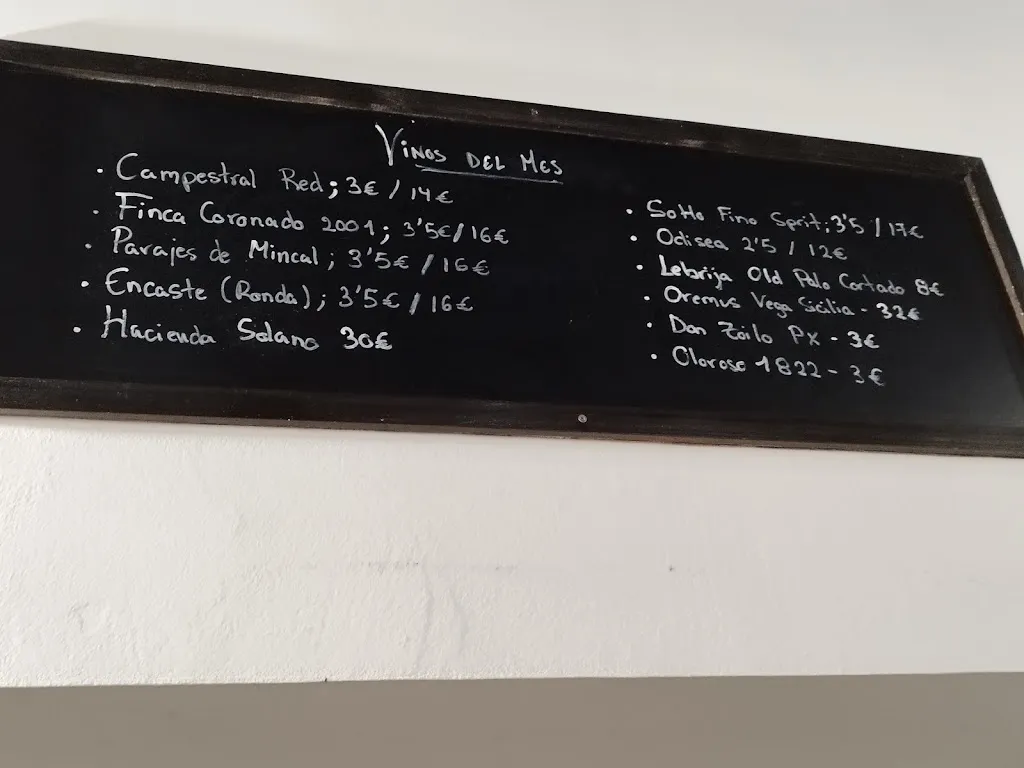 VINOS DEL MES
· Campestral Red; 3€ / 14€
· Finca Coronado 2001; 3'5€/16€
· Parajes de Mincal; 3'5€ / 16€
· Encaste (Ronda); 3'5€ / 16€
· Hacienda Solano 30€
· SoHo Fino Sprit; 3'5 / 17€
· Odisea 2'5 / 12€
· Lebrija Old Palo Cortado 8€
· Oremus Vega Sicilia - 32€
· Don Zoilo Px - 3€
· Oloroso 1822 - 3€